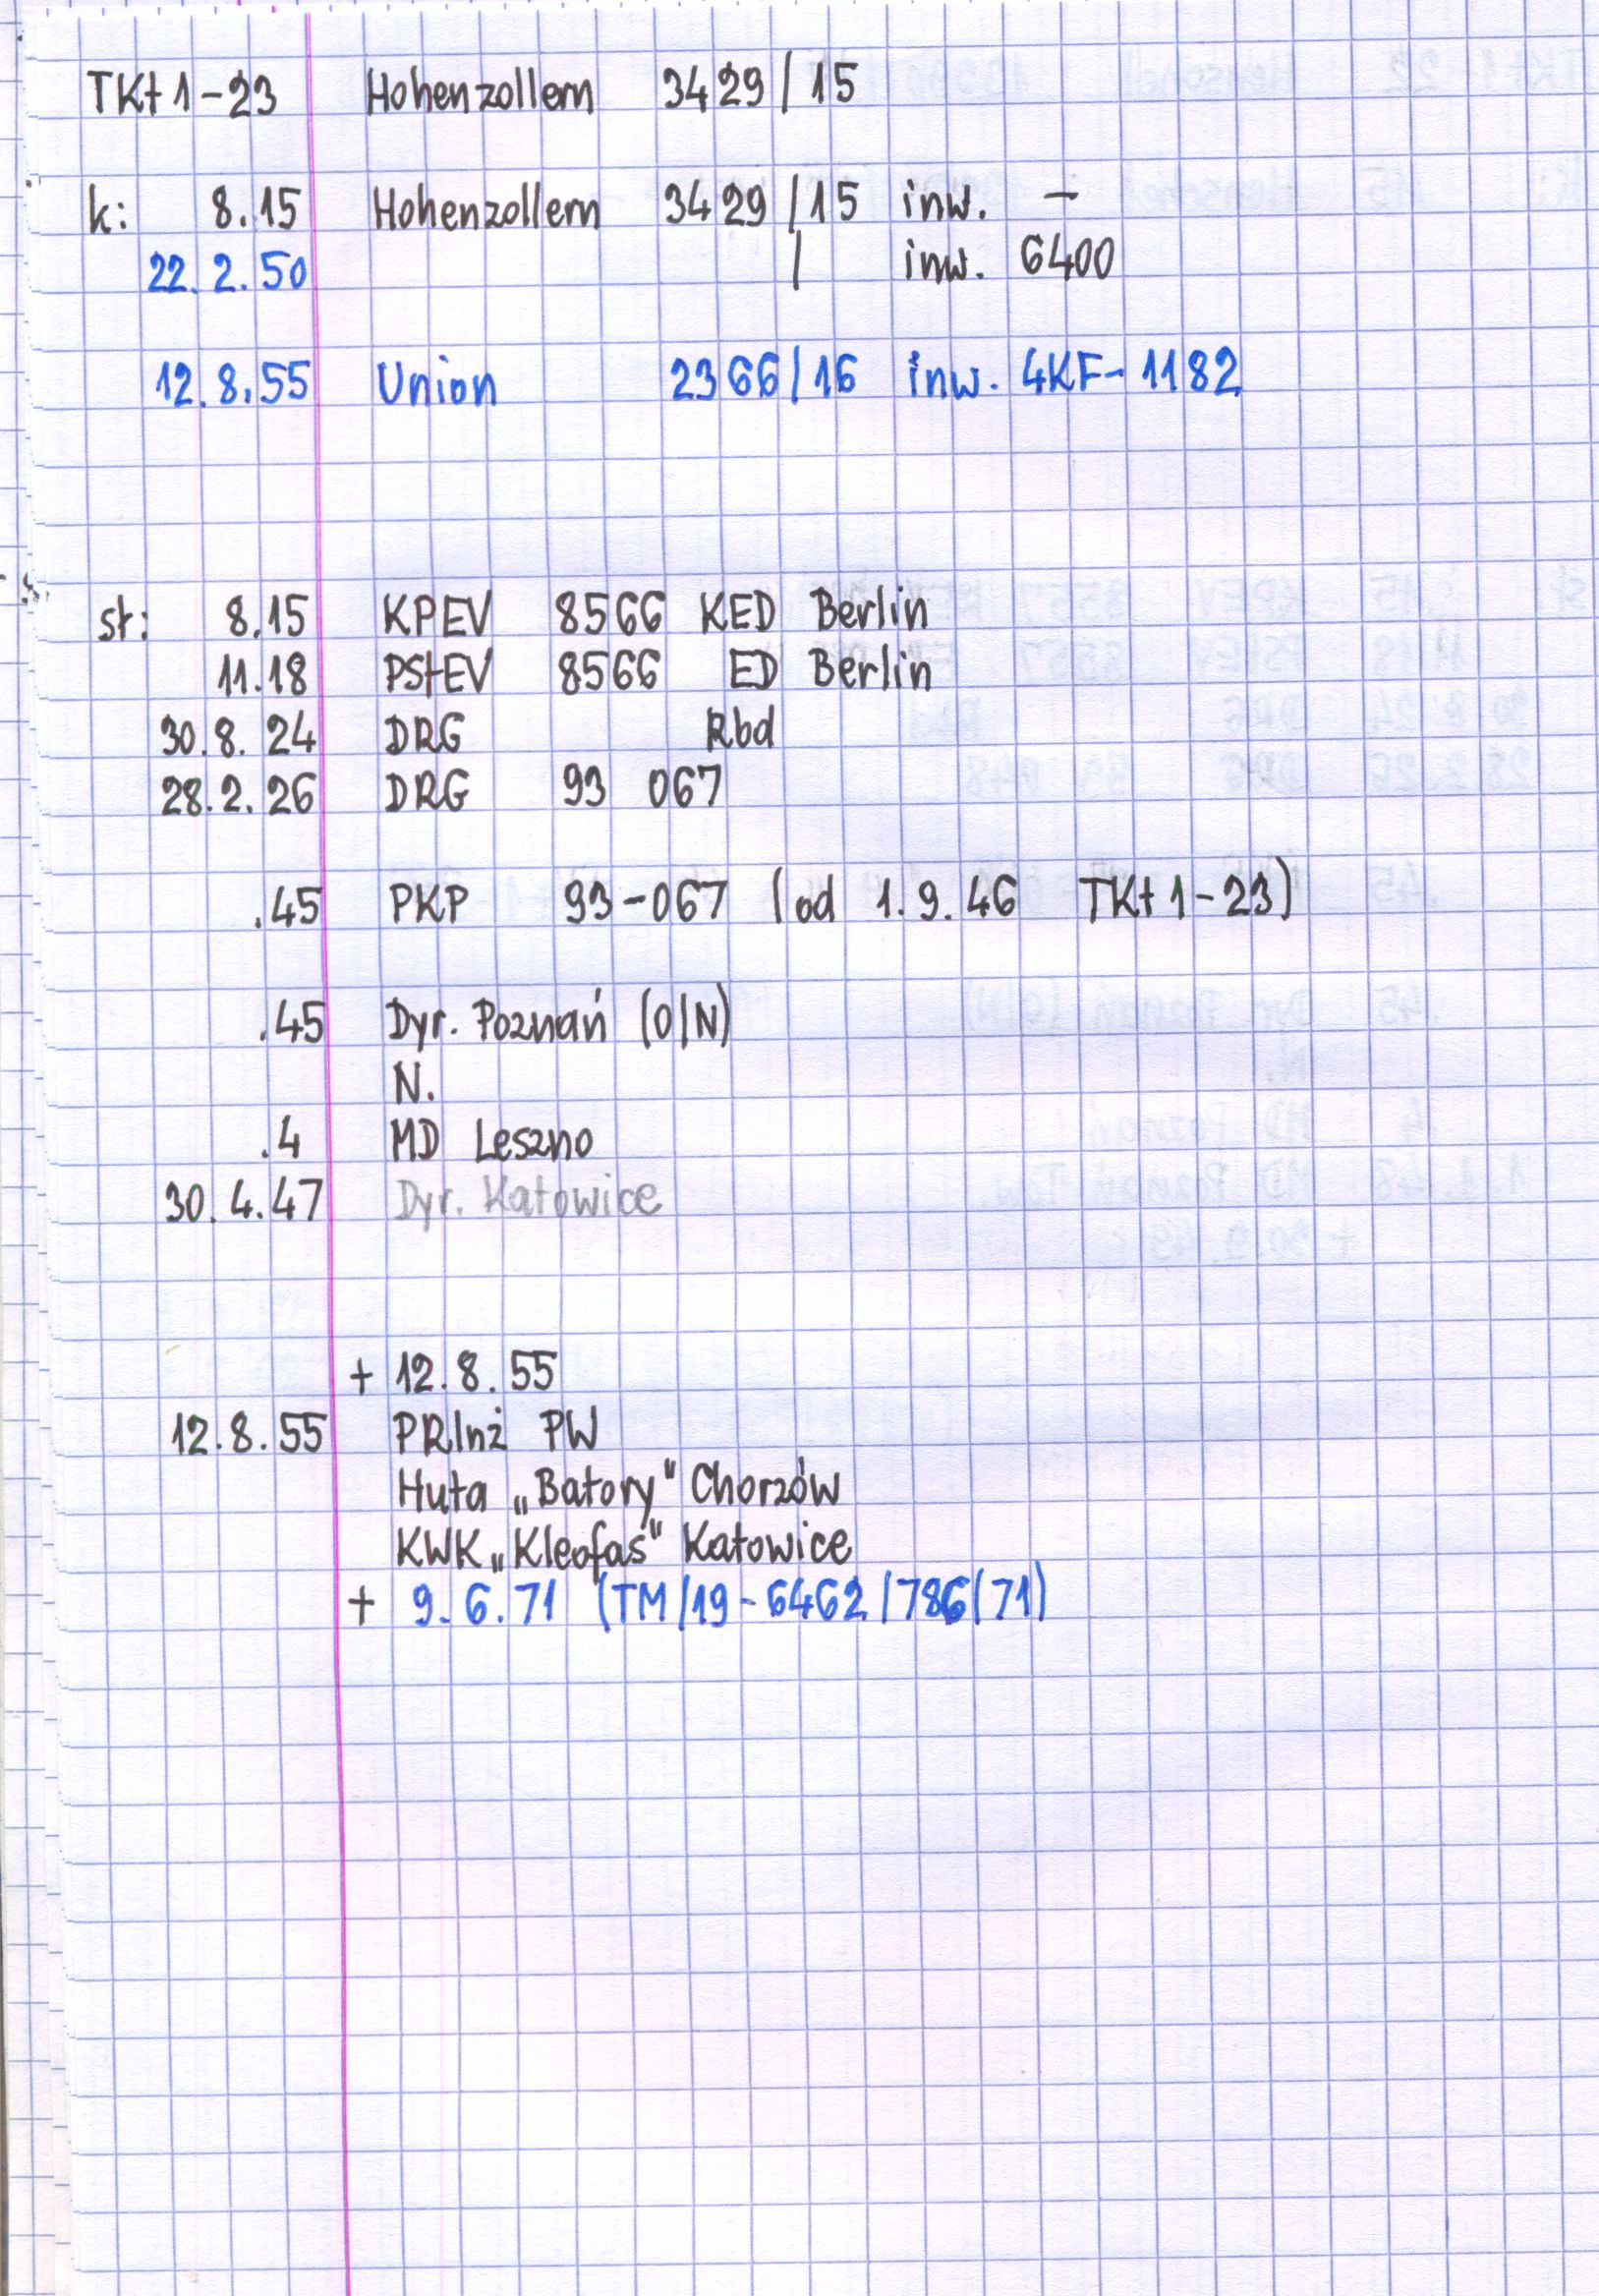 TKt 1-23 Hohenzollern 3429/15
k: 8.15 Hohenzollern 3429/15 inw. -
22.2.50 / inw. 6400
12.8.55 Union 2366/16 inw. 4KF-1182
st: 8.15 KPEV 8566 KED Berlin
11.18 PStEV 8566 ED Berlin
30.8.24 DRG Rbd
28.2.26 DRG 93 067
.45 PKP 93-067 (od 1.9.46 TKt 1-23)
.45 Dyr. Poznań (O/N)
N.
.4 MD Leszno
30.4.47 Dyr. Katowice
+ 12.8.55
12.8.55 PRInż PW
Huta „Batory" Chorzów
KWK „Kleofas" Katowice
+ 9.6.71 (TM/19-6462/786/71)